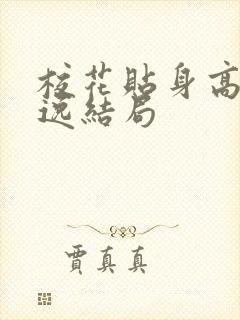 校花貼身高
逸結局
賈真真